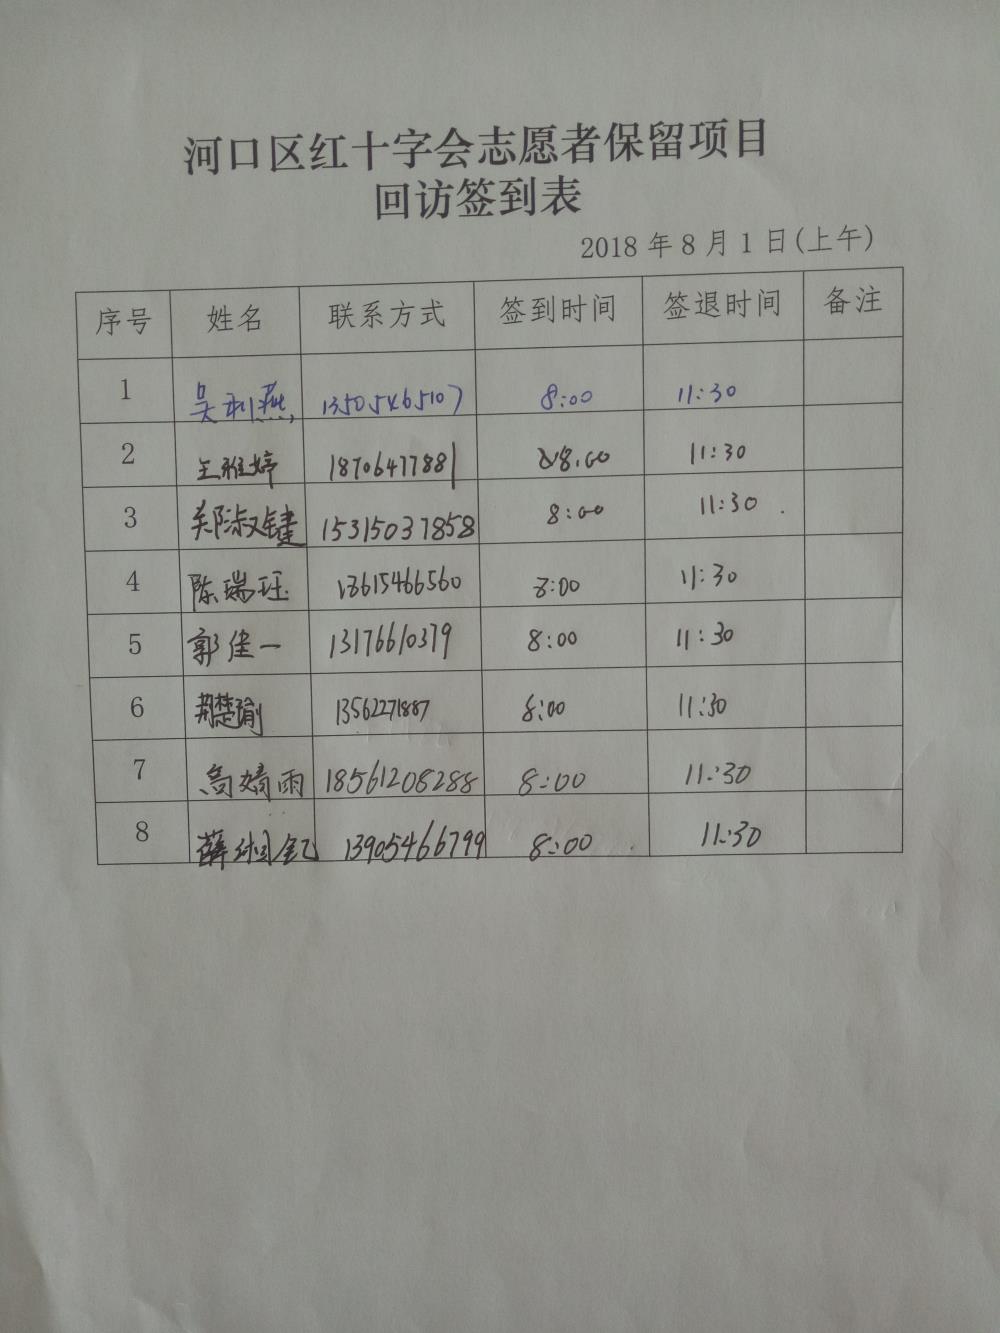 河口区红十字会志愿者保留项目
回访签到表
2018年8月1日(上午)
序号 姓名 联系方式 签到时间 签退时间 备注
1 吴利燕 13505465107 8:00 11:30
2 王雅婷 18706477881 8:00 11:30
3 郑淑键 15315037858 8:00 11:30
4 陈瑞珏 13615466560 8:00 11:30
5 郭佳一 13176610379 8:00 11:30
6 荆楚瑜 13562271887 8:00 11:30
7 高婧雨 18561208288 8:00 11:30
8 薛 13905466799 8:00 11:30